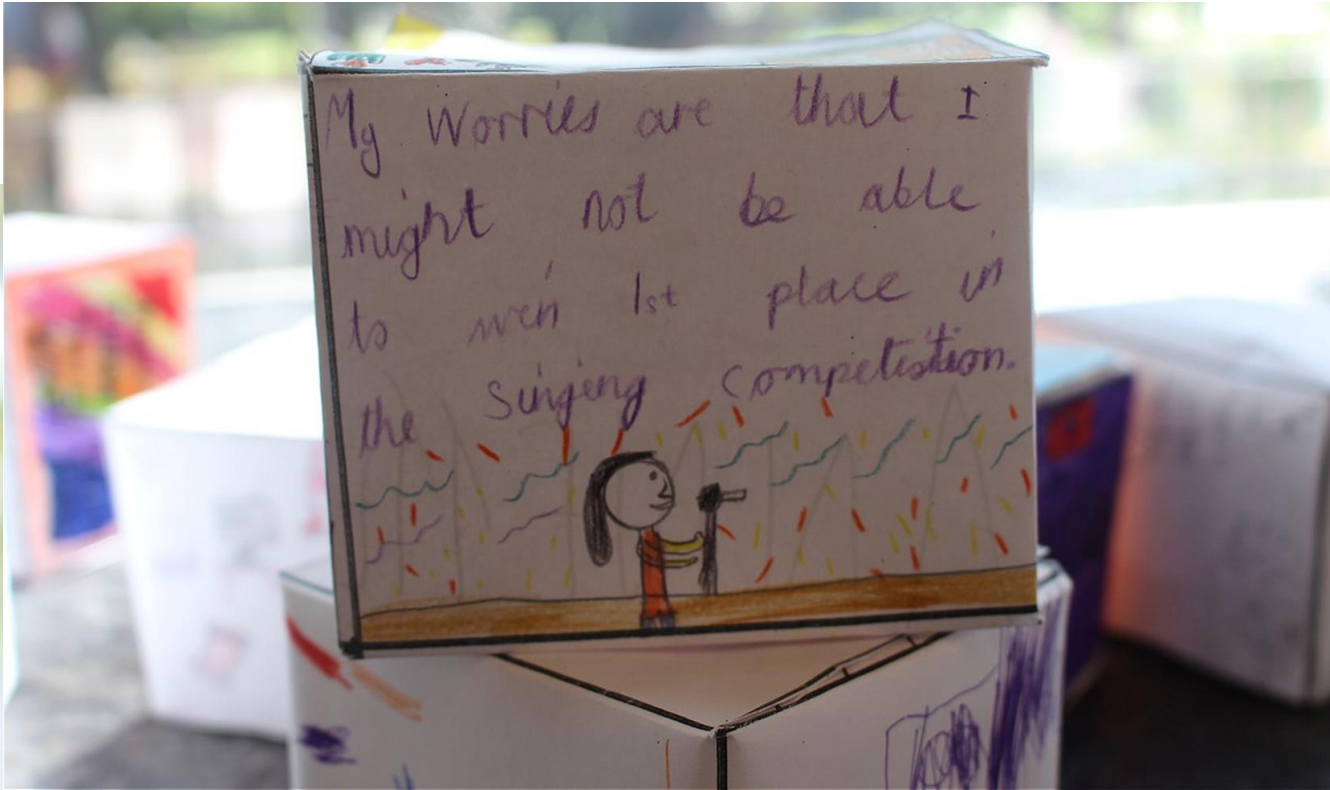 My Worries are that I
might not be able
to win 1st place in
the Singing Competistion.